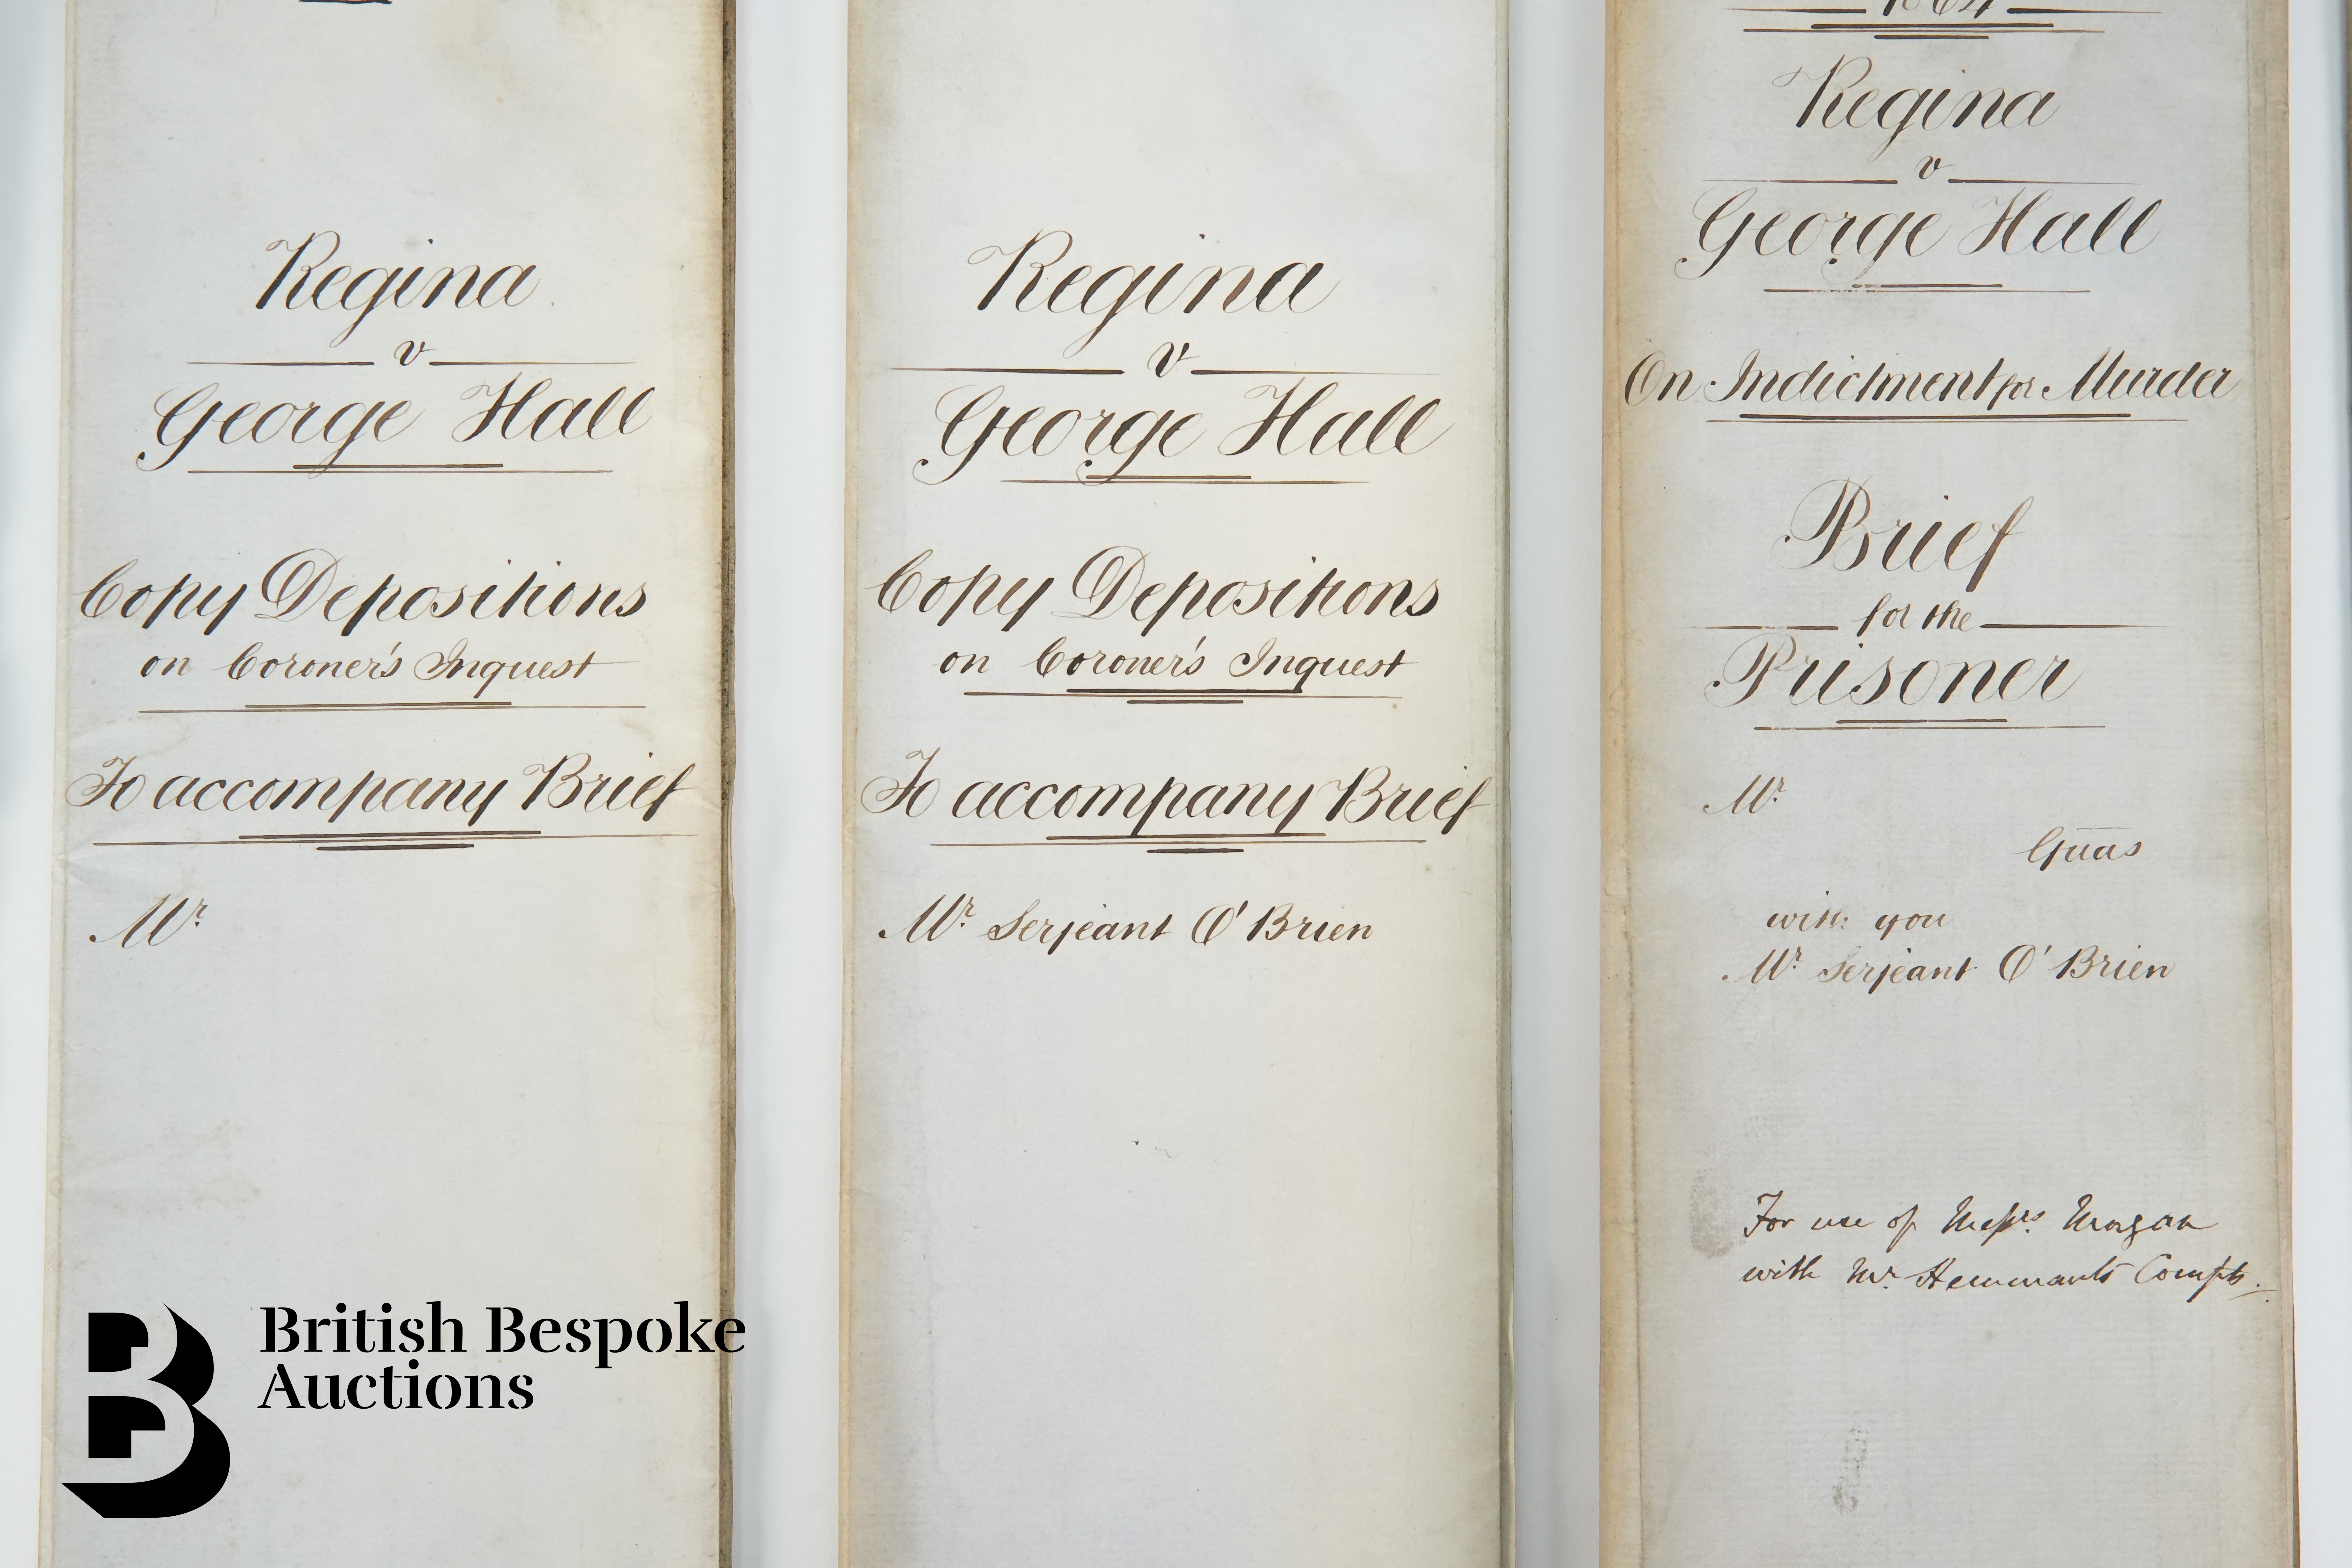 Regina
v
George Hall
Copy Depositions
on Coroner's Inquest
To accompany Brief
Mr.
Regina
v
George Hall
Copy Depositions
on Coroner's Inquest
To accompany Brief
Mr. Serjeant O'Brien
1864
Regina
v
George Hall
On Indictment for Murder
Brief
for the
Prisoner
Mr.
Guas
with you
Mr. Serjeant O'Brien
For use of Messrs. Morgan
with Mr. Hemmants Compts.
British Bespoke
Auctions